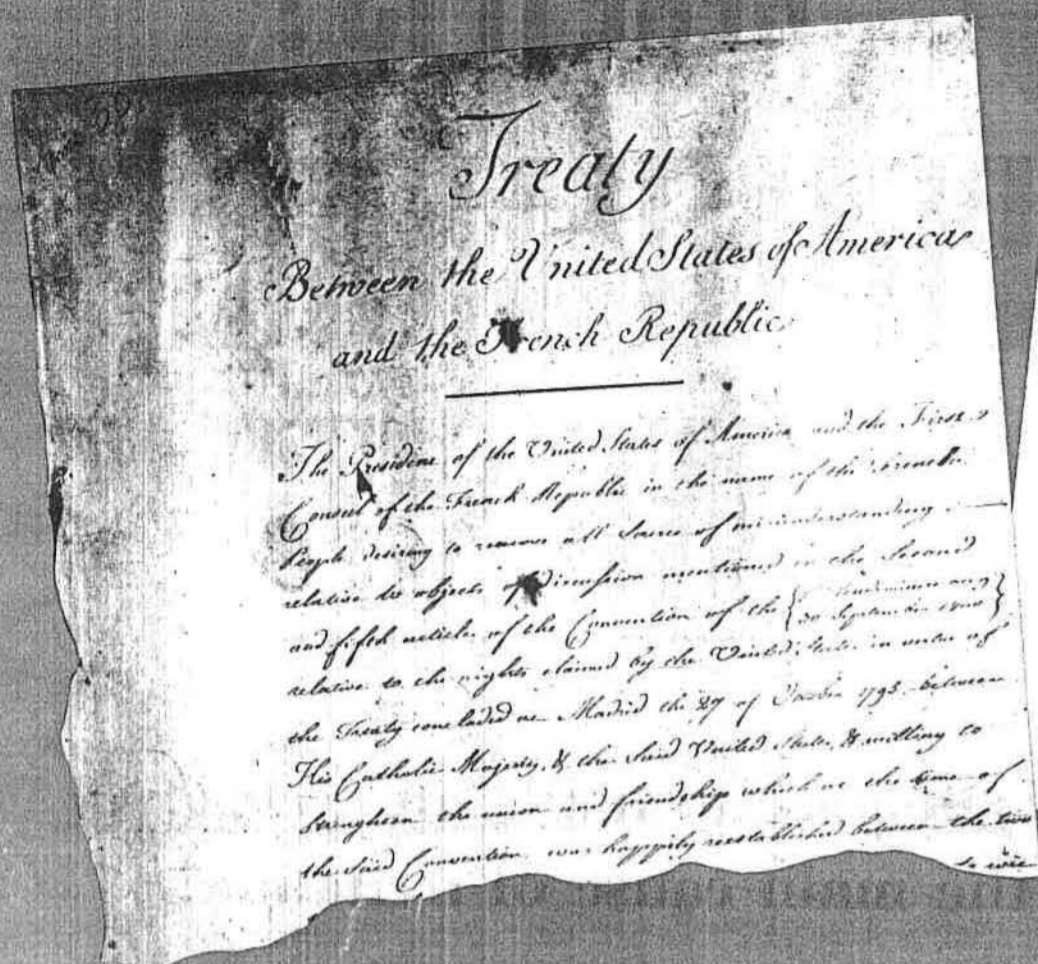 Treaty
Between the United States of America
and the French Republic
The President of the United States of America and the First
Consul of the French Republic in the name of the French
People desiring to remove all Source of misunderstanding
relative to objects of discussion mentioned in the Second
and fifth articles of the Convention of the { Vendémiaire an 9
30 September 1800 }
relative to the rights claimed by the United States in virtue of
the Treaty concluded at Madrid the 27 of October 1795, between
His Catholic Majesty, & the Said United States, & willing to
Strengthen the union and friendship which at the time of
the Said Convention was happily reestablished between the two